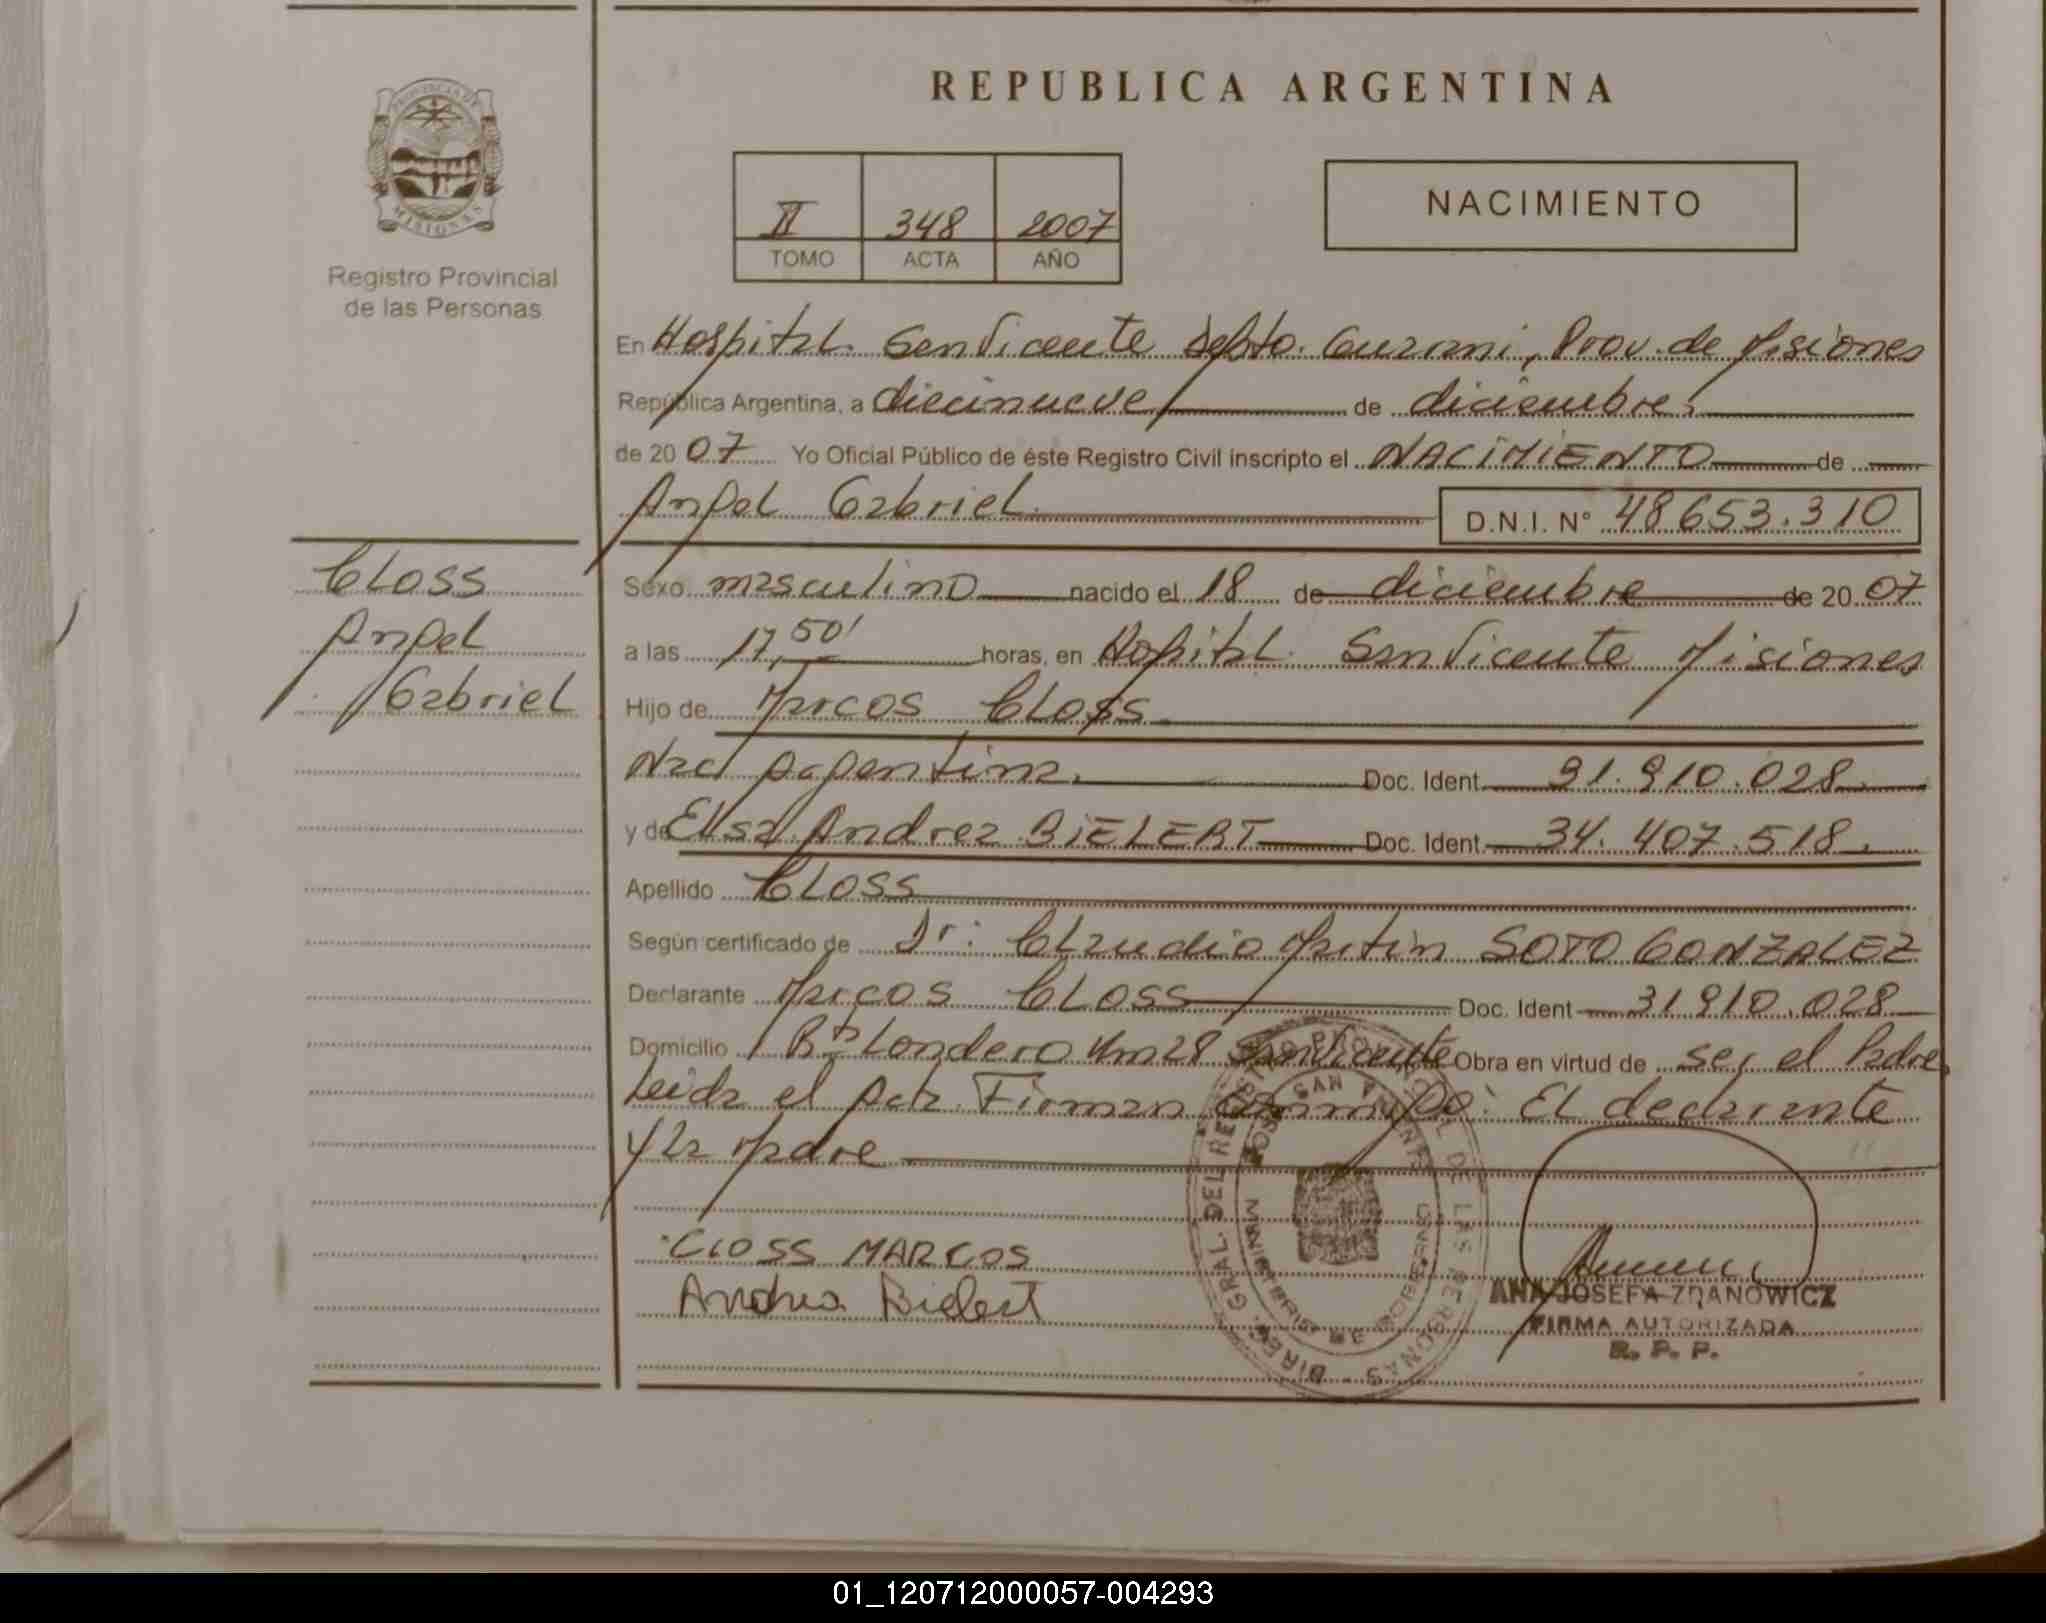 PROVINCIA DE
MISIONES
Registro Provincial
de las Personas
REPUBLICA ARGENTINA
II 348 2007
TOMO ACTA AÑO
NACIMIENTO
En Hospital San Vicente Depto. Guarani, Prov. de Misiones
República Argentina, a diecinueve de diciembre
de 20 07 Yo Oficial Público de éste Registro Civil inscripto el NACIMIENTO de
Angel Gabriel D.N.I. Nº 48653.310
Closs
Angel
Gabriel
Sexo masculino nacido el 18 de diciembre de 20 07
a las 17,50' horas, en Hospital San Vicente Misiones
Hijo de Marcos Closs
Nac argentina. Doc. Ident. 31.910.028.
y de Elsa Andrea BIELERT Doc. Ident. 34.407.518.
Apellido Closs
Según certificado de Dr: Claudio Martin SOTO GONZALEZ
Declarante Marcos Closs Doc. Ident 31910.028
Domicilio Bº Londero Km 28 San Vicente Obra en virtud de ser el Padre
Leida el acta Firman conmigo: El declarante
y la Madre
DIREC. GRAL. DEL REGISTRO PROVINCIAL DE LAS PERSONAS
SAN VICENTE
MINISTERIO DE GOBIERNO
Closs MARCOS
Andrea Bielert
ANA JOSEFA ZDANOWICZ
FIRMA AUTORIZADA
R. P. P.
01_120712000057-004293